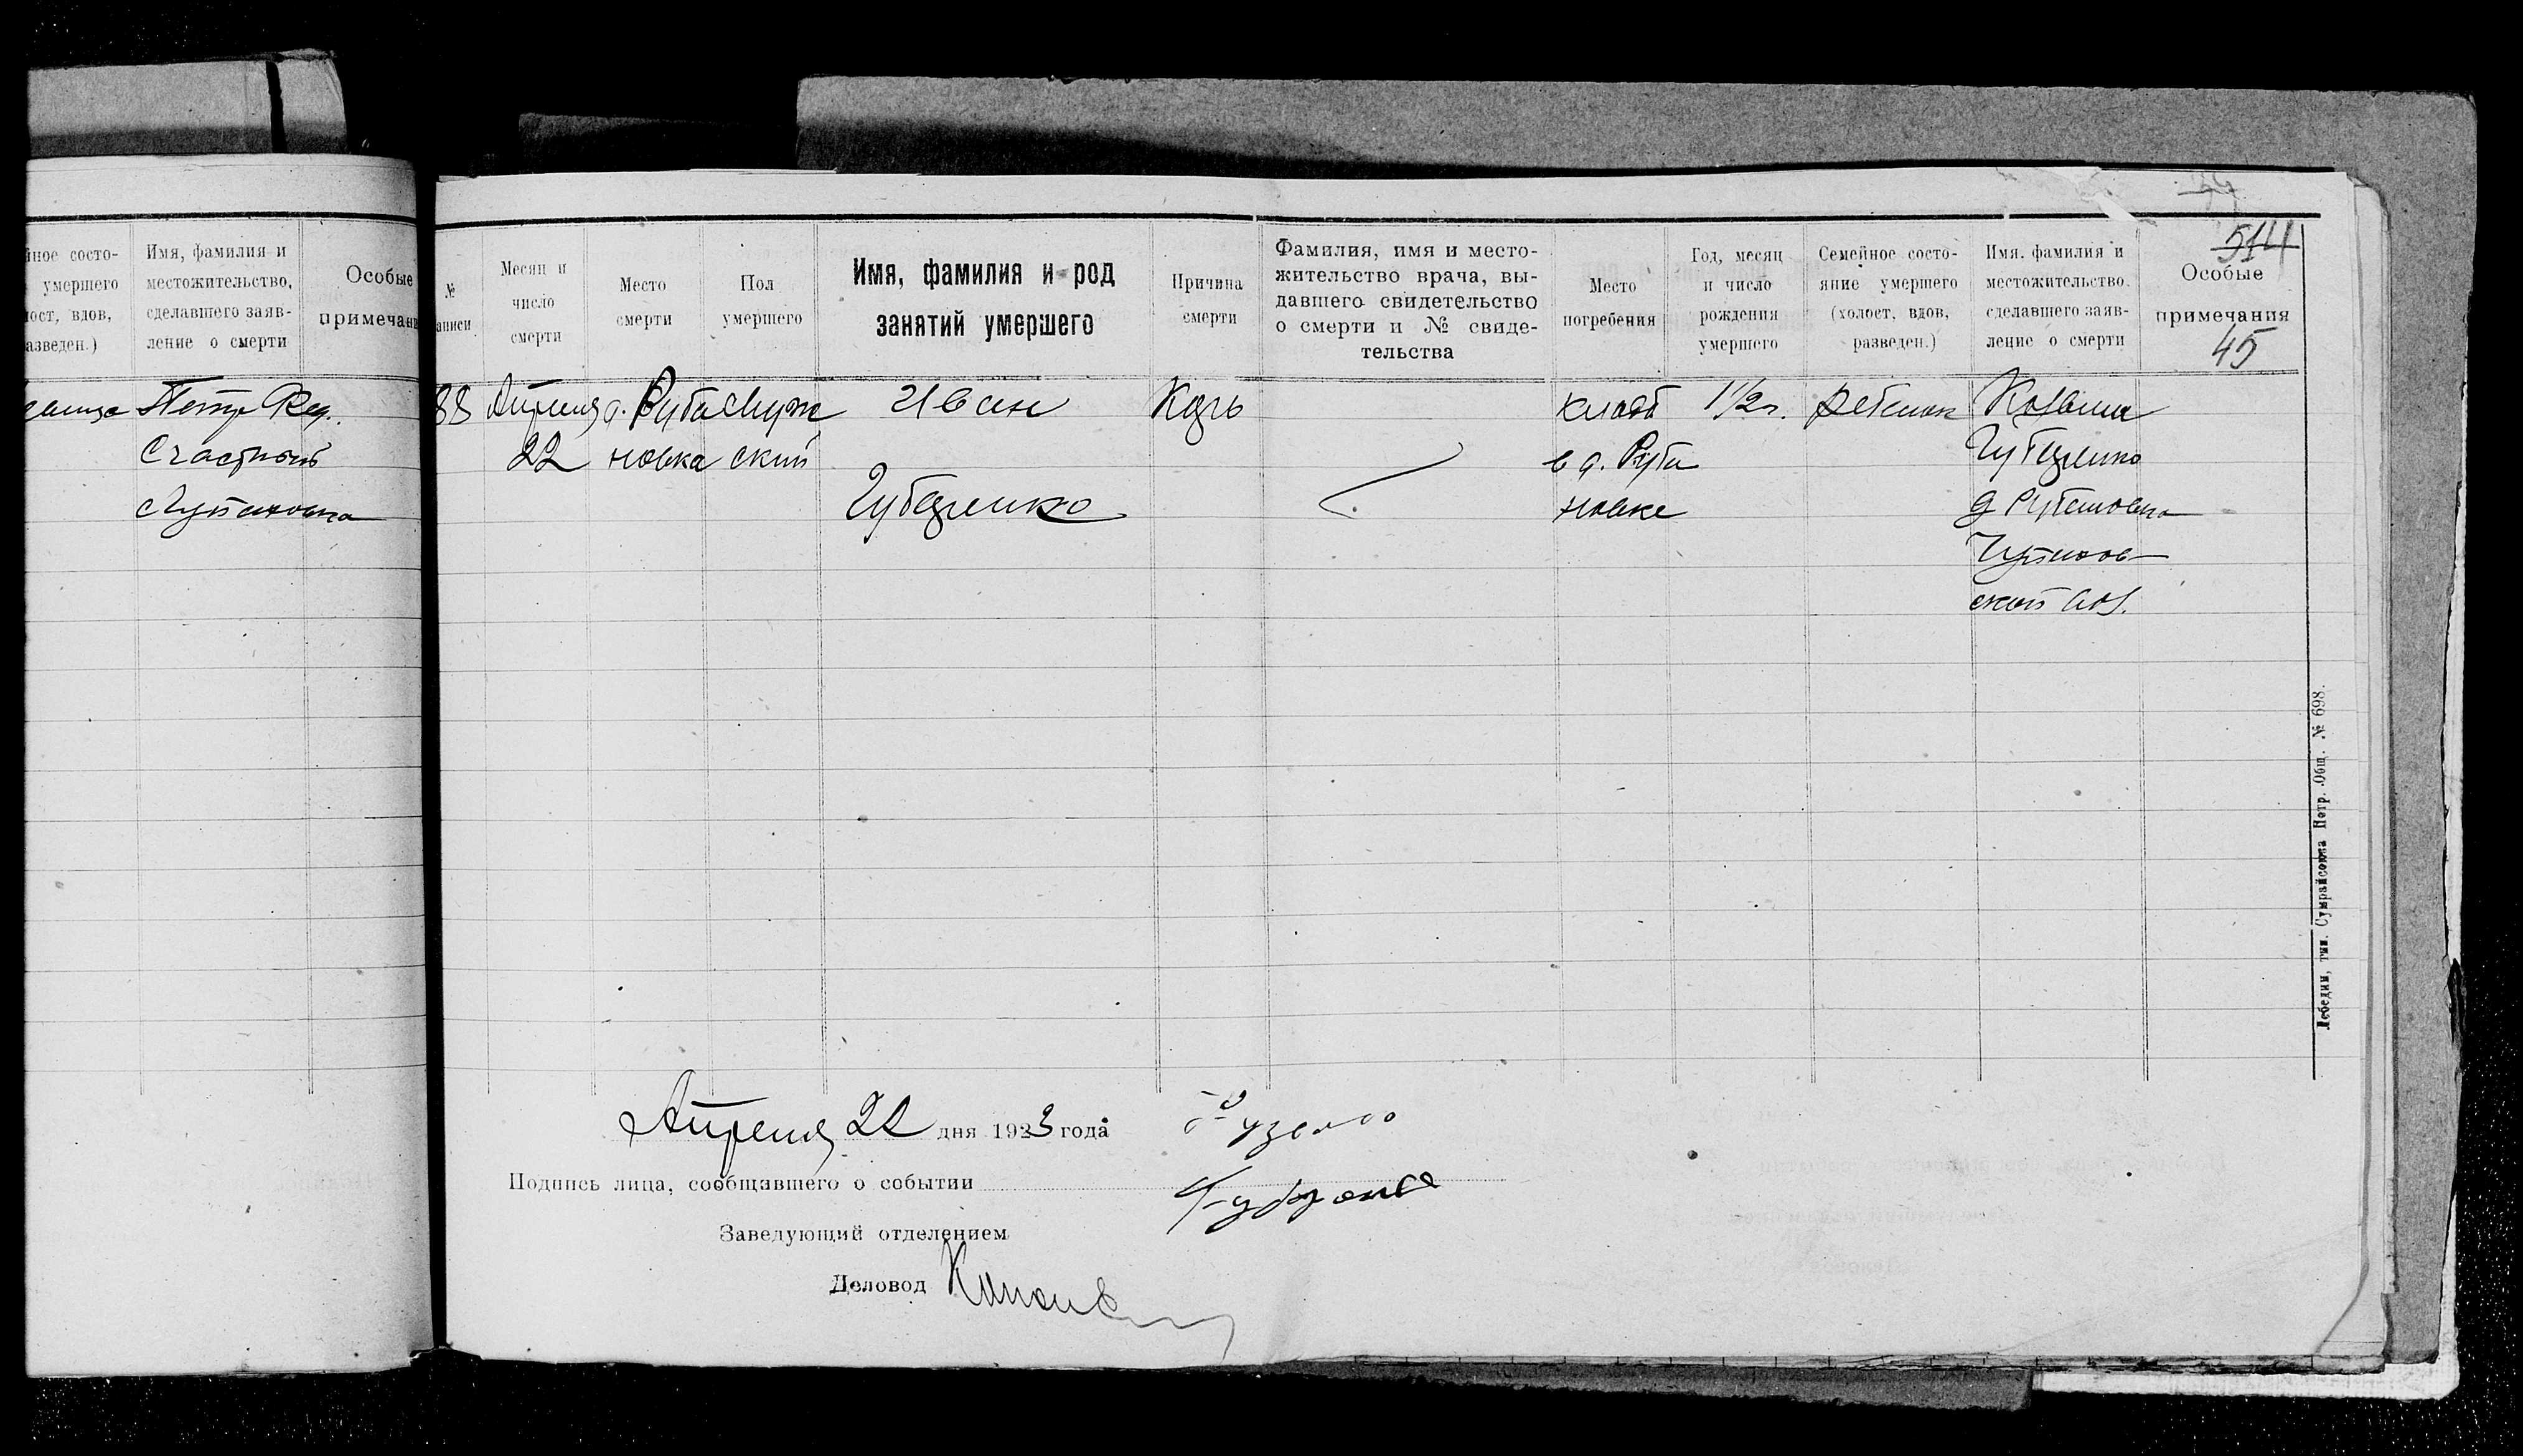 ное состо-
умершего
ост, вдов,
азведен.)
Имя, фамилия и
местожительство,
сделавшего заяв-
ление о смерти
Особые
примечани
Петр Фед.
Счастной
514
№
аписи
Месяц и
число
смерти
Место
смерти
Пол
умершего
Имя, фамилия и род
занятий умершего
Причина
смерти
Фамилия, имя и место-
жительство врача, вы-
давшего свидетельство
о смерти и № свиде-
тельства
Место
погребения
Год, месяц
и число
рождения
умершего
Семейное состо-
яние умершего
(холост, вдов,
разведен.)
Имя, фамилия и
местожительство,
сделавшего заяв-
ление о смерти
Особые
примечания
45
88
Апреля
22
д. Руба
новка
Мужс
ский
Иван
Губаренко
Корь
кладб
в д. Руба
новке
1 1/2 г.
ребенок
Козьма
Губаренко
д Рубановка
Апреля 22 дня 1923 года
Подпись лица, сообщавшего о событии
Заведующий отделением
Деловод
Лебедин, тип. Сумрайсоюза Потр. Общ. № 698.